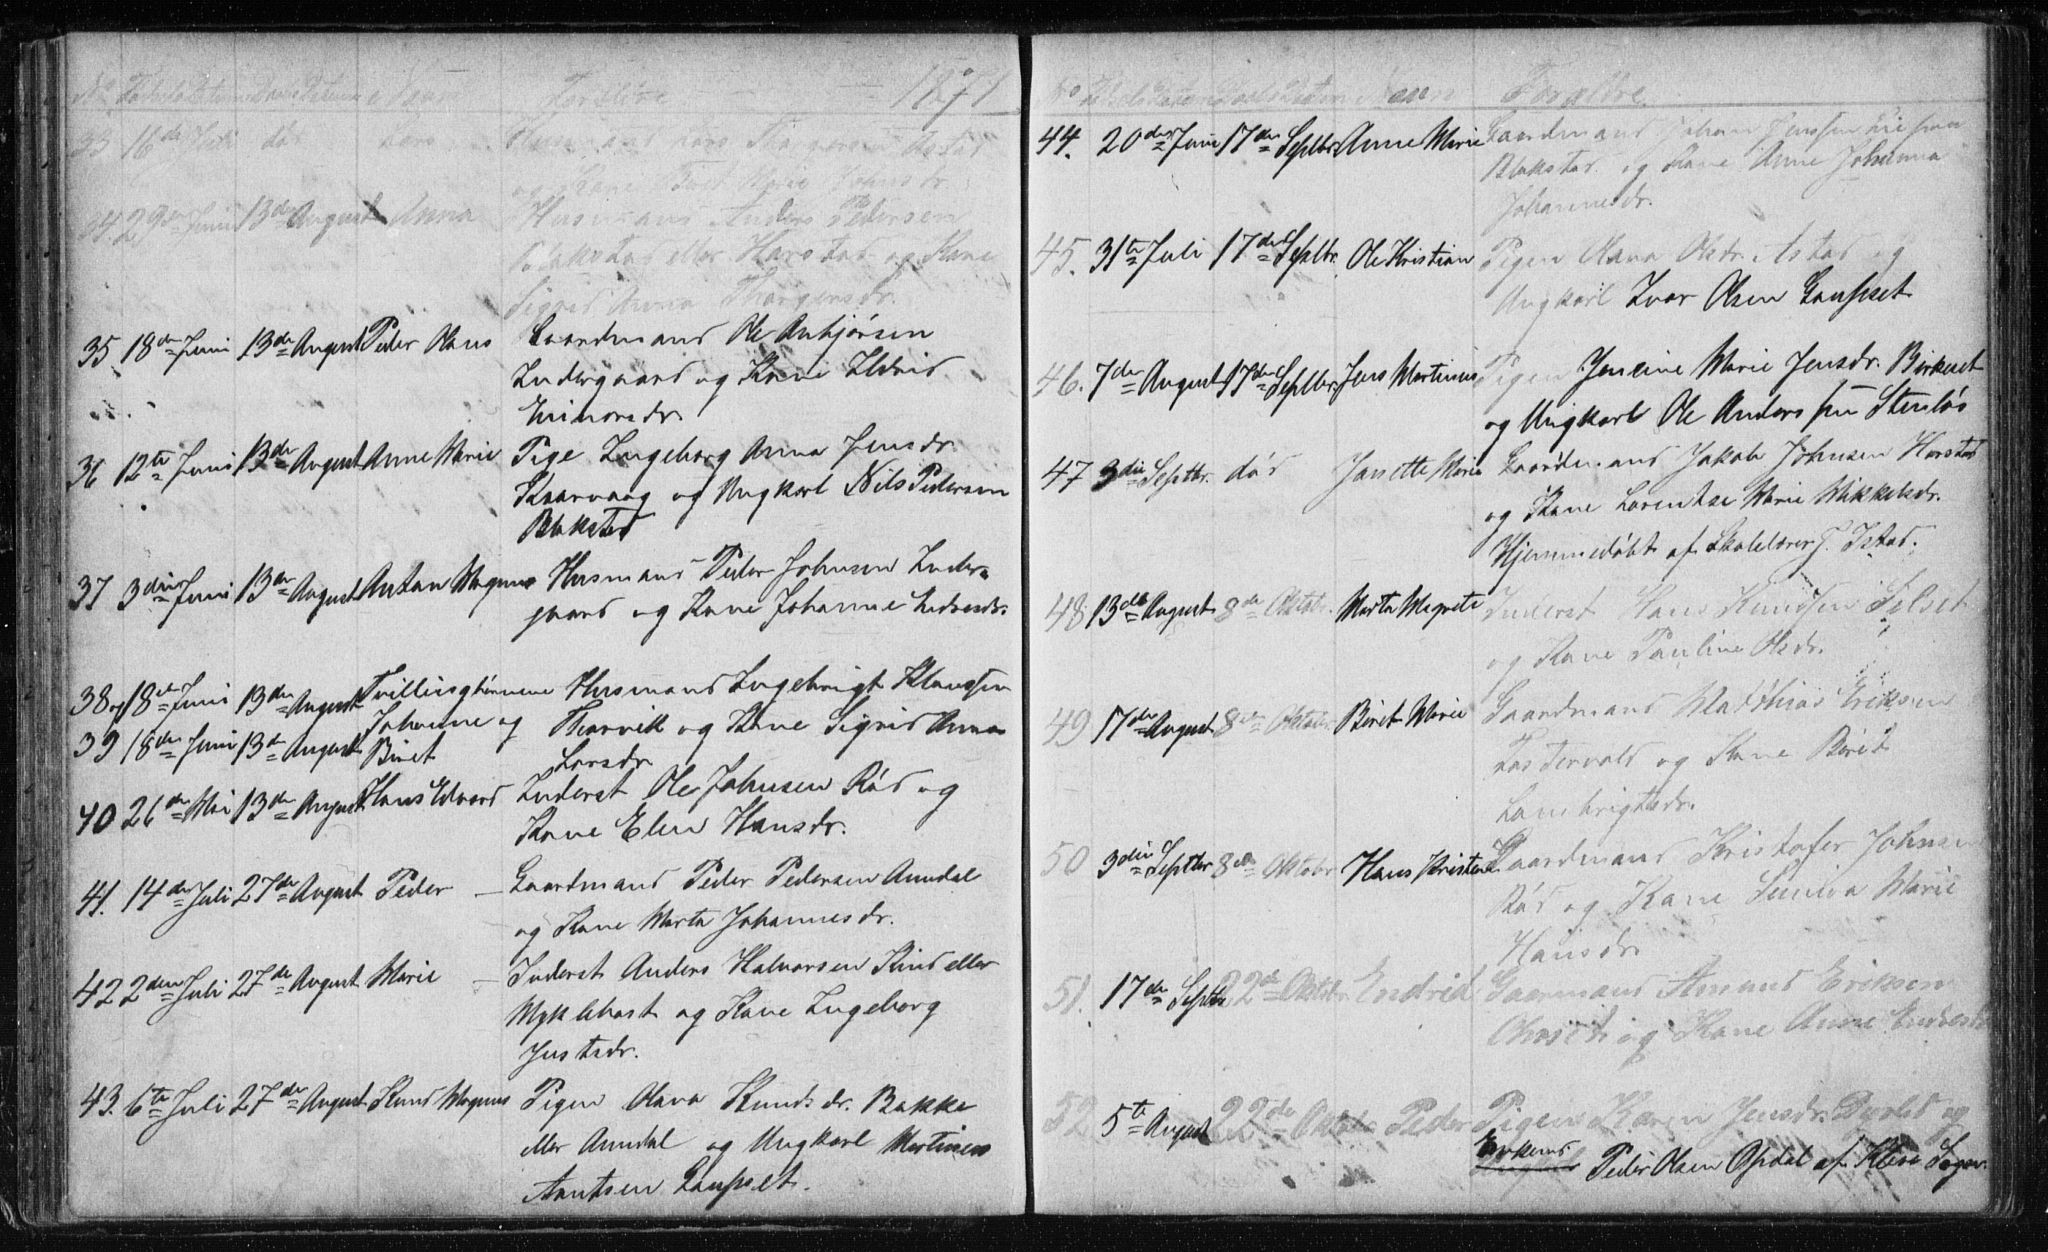 No Fødsels Datum Daabs Datum Navn Forældre 1871
33 16de Juli død Lars Husmand Lars Thorgersen Astad
og Kone Beret Marie Johnsdr.
34. 29de Juni 13de August Anna Husmand Anders Pedersen
Blakstad eller Harstad og Kone
Sigrid Anna Thorgersdr.
35 18de Juni 13de August Peder Hans Gaardmand Ole Anbjørsen
Indergaard og Kone Eldrid
Einarsdr.
36 12te Juni 13de August Anne Marie Pige Ingeborg Anna Jensdr.
Kaarvaag og Ungkarl Nils Pedersen
Blakstad
37 3die Juni 13de August Anton Magnus Husmand Peder Johnsen Inder-
gaard og Kone Johanne Endresdr.
38 og 18de Juni 13de August Tvillingbørnene Husmand Ingebrigt Klaussen
39 18de Juni 13de August Johanne og Beret Thorvik og Kone Sigrid Anna
Larsdr.
40 26de Mai 13de August Hans Edvard Inderst Ole Johnsen Rød og
Kone Elen Hansdr.
41. 14de Juli 27de August Peder – Gaardmand Peder Pedersen Aandal
og Kone Marta Johannesdr.
42 2den Juli 27de August Marie – Inderst Anders Halvorsen Rind eller
Myklebost og Kone Ingeborg
Justsdr.
43. 6te Juli 27de August Knud Magnus Pigen Olava Knudsdr. Bakke
eller Aandal og Ungkarl Martinus
Aantsen Gaupset.
No Fødsels Datum Daabs Datum Navn Forældre
44. 20de Juni 17de Septbr. Anne Marie Gaardmand Johan Jenssen
Blakstad og Kone Anne Johanna
Johannesdr.
45. 31te Juli 17de Septbr. Ole Kristian Pigen Olava Olsdr. Astad og
Ungkarl Ivar Olsen Gaupset
46. 7de August 17de Septbr. Jens Martinus Pigen Jensine Marie Jensdr. Birkeset
og Ungkarl Ole Anderssen Stensløs
47 3die Septbr. død Jansette Marie Gaardmand Jakob Johnsen Harstad
og Kone Lorentse Marie Mikkelsdr.
Hjemmedøbt af Skolelærer T. Istad.
48. 13de August 8de Oktobr. Marta Megrete Inderst Hans Knudsen Silset
og Kone Pauline Olsdr.
49 17de August 8de Oktobr. Beret Marie Gaardmand Matthias Eriksen
Fastervold og Kone Beret
Lambrigtsdr.
50 3die Septbr 8de Oktobr Hans Kristen Gaardmand Kristofer Johnsen
Rød og Kone Marie
Hansdr.
51. 17de Septbr 22de Oktobr. Endrid Gaarmand Amund Eriksen
og Kone Anne Endresdr
52 5te August 22de Oktobr Peder Pigen Karen Jensdr. og
Enkemd. Peder Olsen Opdal af Kleve Sogn.